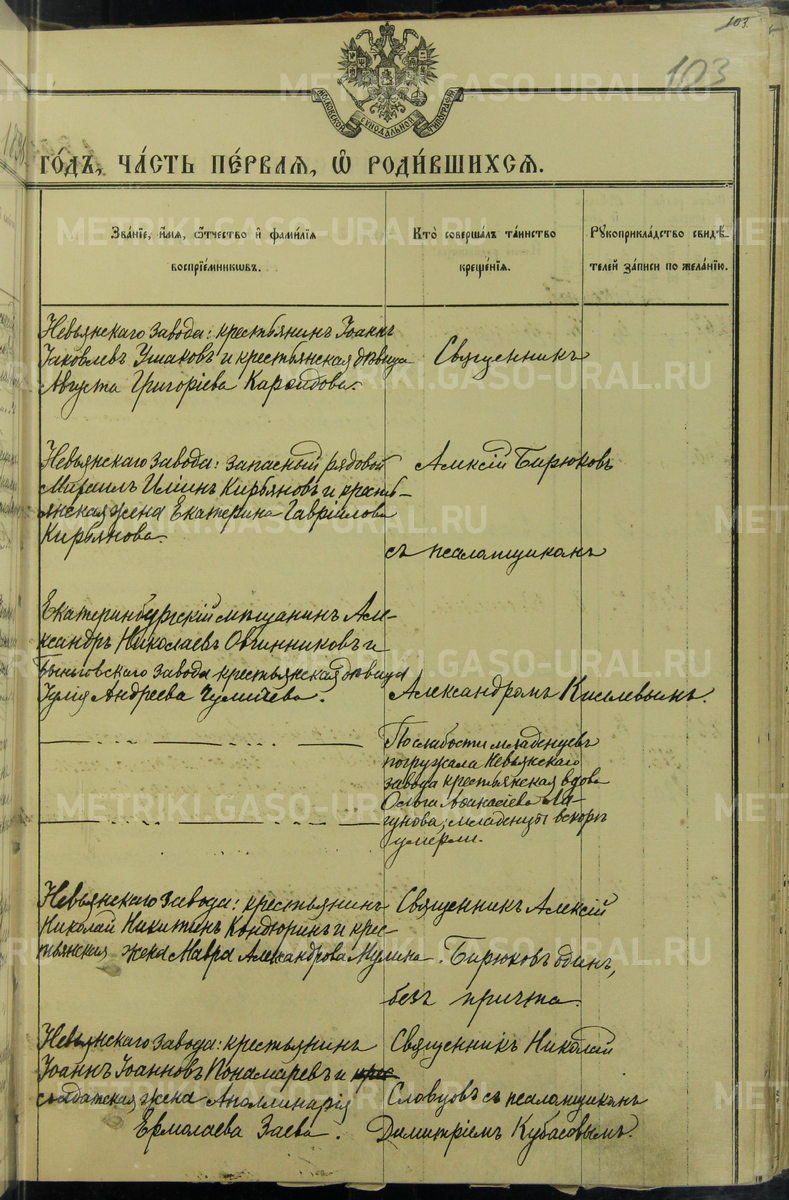 103.
103
МОСКОВСКОЙ СѴНОДАЛЬНОЙ ТИПОГРАФІИ
1891
ГО́ДЪ, ЧА́СТЬ ПЕ́РВАЯ, Ѡ҆ РОДИ́ВШИХСЯ.
Зва́нїе, и҆́мѧ, ѻ҆́тчество и҆ фами́лїѧ
воспрїе́мникѡвъ.
Кто̀ соверша́лъ та́инство
креще́нїѧ.
Рꙋкоприкла́дство свидѣ́-
телей за́писи по жела́нїю.
Невьянскаго завода: крестьянинъ Іоаннъ
Іаковлевъ Ушаковъ и крестьянская дѣвица
Августа Григоріева
Священникъ
Невьянскаго завода: запасный рядовой
Михаилъ Иліинъ Кирьяновъ и кресть-
янская жена Екатерина Гавріилова
Кирьянова.
Алексій Бирюковъ
съ псаломщикомъ
Екатеринбургскій мѣщанинъ Але-
ксандръ Николаевъ Овчинниковъ и
Быньговскаго завода крестьянская дѣвица
Іулія Андреева
Александромъ Киселевымъ.
По слабости младенцевъ
погружала Невьянскаго
завода крестьянская вдова
Ольга Аѳанасіева Ла-
гунова; младенцы вскорѣ
умерли.
Невьянскаго завода: крестьянинъ
Николай Никитинъ Кондюринъ и крес-
тьянская жена Мавра Александрова Мулина.
Священникъ Алексій
Бирюковъ одинъ,
безъ причта.
Невьянскаго завода: крестьянинъ
Іоаннъ Іоанновъ Пономаревъ и
солдатская жена Аполлинарія
Ермолаева Заева.
Священникъ Николай
Словцовъ съ псаломщикомъ
Димитріемъ Кубасовымъ.
METRIKI.GASO-URAL.RU